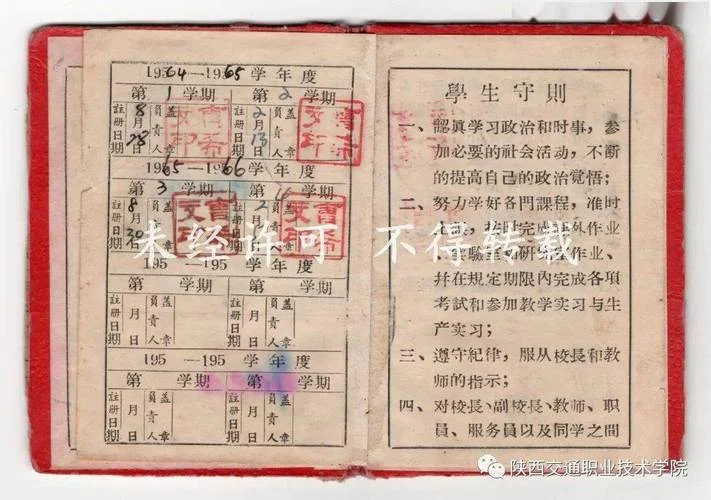 1964—1965学年度
第1学期 第2学期
註册日期 8月28日 負责人 盖章 註册日期 2月13日 負责人 盖章
1965—1966学年度
第3学期 第 学期
註册日期 8月30日 負责人 盖章 2月 負责人 盖章
195 —195 学年度
第 学期 第 学期
註册日期 月日 負责人 盖章 註册日期 月日 負责人 盖章
195 —195 学年度
第 学期 第 学期
註册日期 月日 負责人 盖章 註册日期 月日 負责人 盖章
學生守則
一、認眞学习政治和时事，参
加必要的社会活动，不断
的提高自己的政治覚悟；
二、努力学好各門課程，准时
按时完成 外作业
、实驗室 研 作业、
幷在規定期限內完成各項
考試和参加教学实习与生
产实习；
三、遵守紀律，服从校長和教
师的指示；
四、对校長、副校長、教师、职
員、服务員以及同学之間
未经许可 不得转载
陕西交通职业技术学院